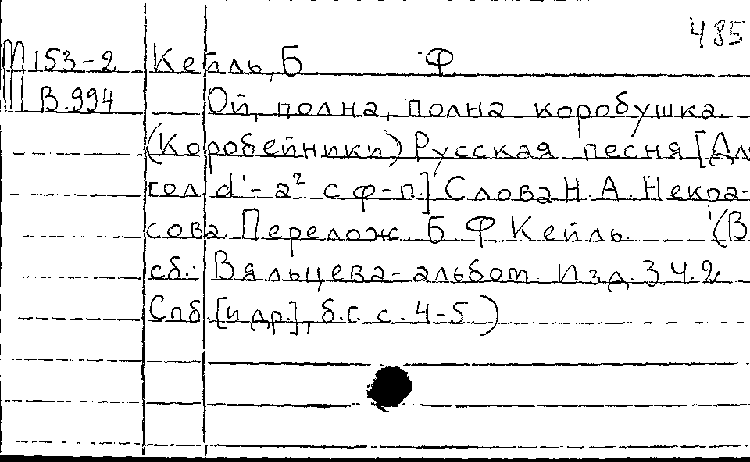 485
М 153-2 Кейль, Б Ф
В.994 Ой, полна, полна коробушка.
(Коробейники) Русская песня [Дл
гол d'-a² с ф-п.] Слова Н. А. Некра-
сова Перелож. Б Ф Кейль. (В
сб.: Вяльцева-альбом. Изд. 3 Ч.2
Спб [и др.], б.г с. 4-5)